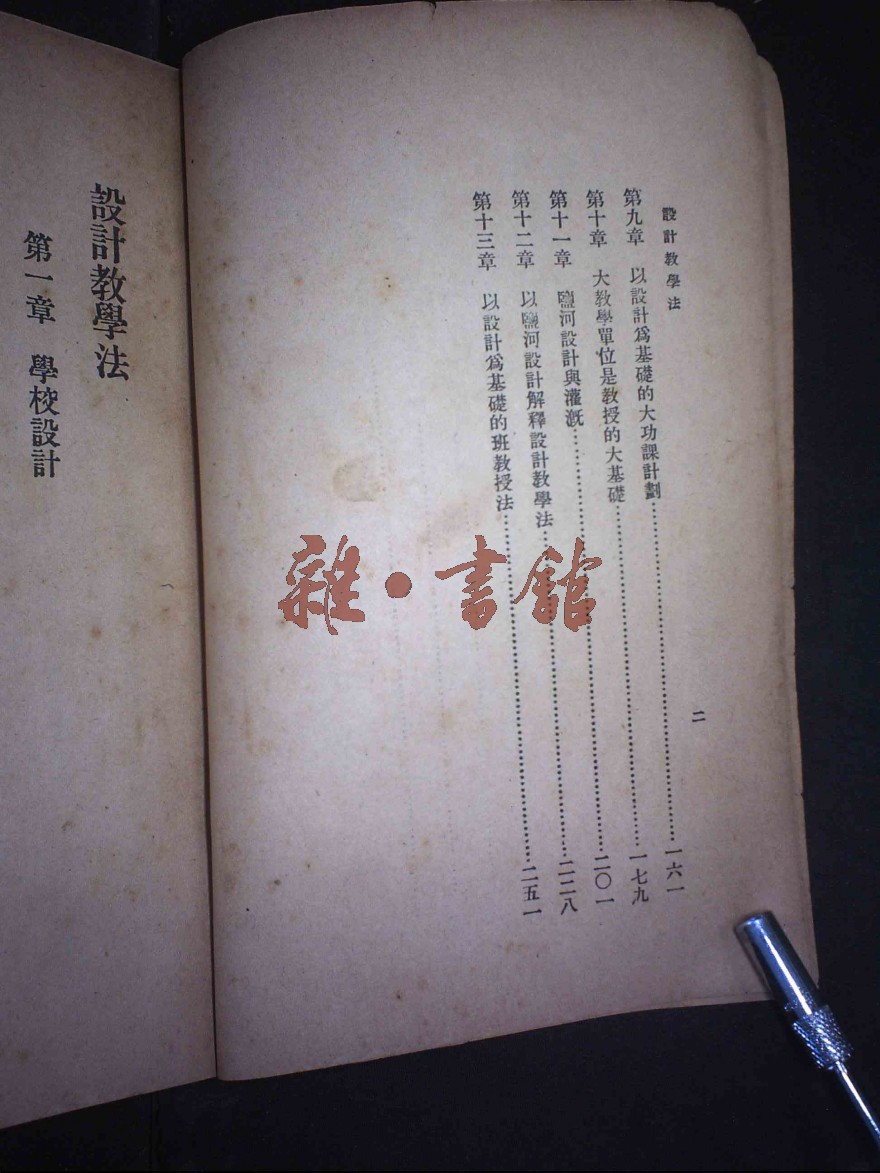 設計教學法
二
第九章 以設計爲基礎的大功課計劃……一六一
第十章 大教學單位是教授的大基礎……一七九
第十一章 鹽河設計與灌溉……二〇一
第十二章 以鹽河設計解釋設計教學法……二二八
第十三章 以設計爲基礎的班教授法……二五一
設計教學法
第一章 學校設計
雜·書館